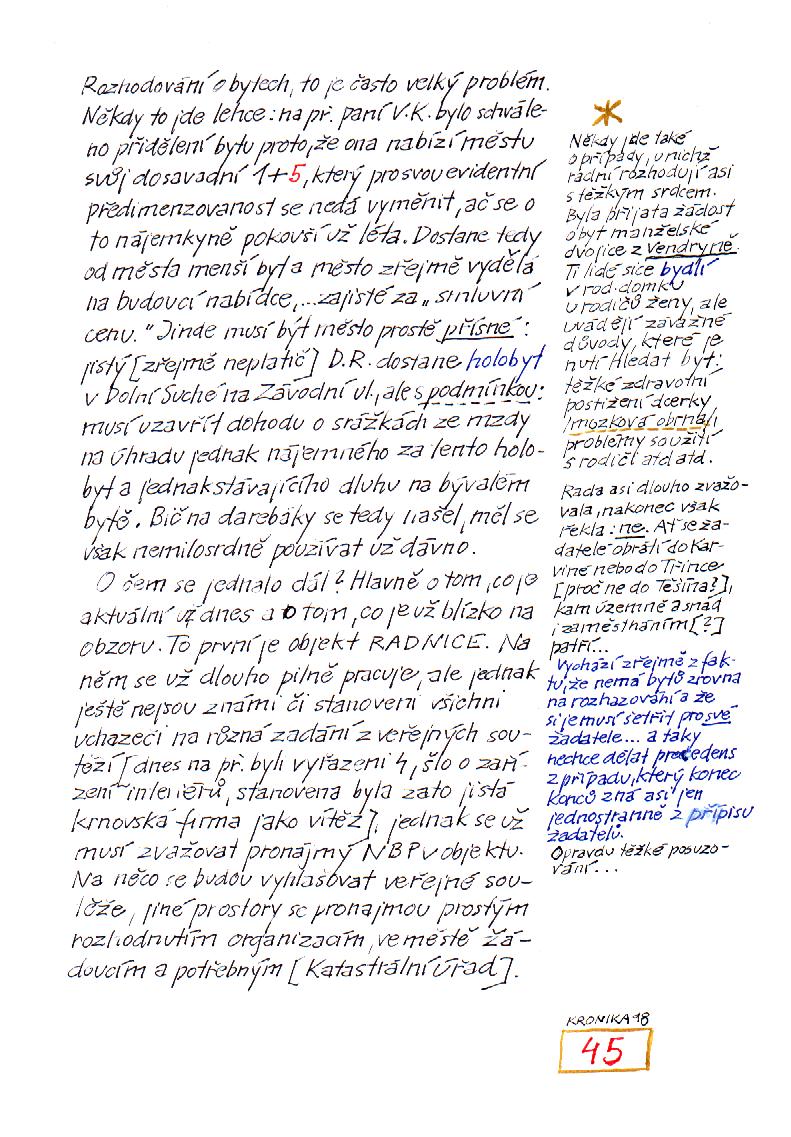 Rozhodování o bytech, to je často velký problém.
Někdy to jde lehce: na př. paní V.K. bylo schvále-
no přidělení bytu proto, že ona nabízí městu
svůj dosavadní 1+5, který pro svou evidentní
předimenzovanost se nedá vyměnit, ač se o
to nájemkyně pokouší už léta. Dostane tedy
od města menší byt a město zřejmě vydělá
na budoucí nabídce, ...zajisté za „smluvní
cenu." Jinde musí být město prostě přísné:
jistý [zřejmě neplatič] D.R. dostane holobyt
v Dolní Suché na Závodní ul., ale s podmínkou:
musí uzavřít dohodu o srážkách ze mzdy
na úhradu jednak nájemného za tento holo-
byt a jednak stávajícího dluhu na bývalém
bytě. Bič na darebáky se tedy našel, měl se
však nemilosrdně používat už dávno.
O čem se jednalo dál? Hlavně o tom, co je
aktuální už dnes a o tom, co je už blízko na
obzoru. To první je objekt RADNICE. Na
něm se už dlouho pilně pracuje, ale jednak
ještě nejsou známi či stanoveni všichni
uchazeči na různá zadání z veřejných sou-
těží [dnes na př. byli vyřazeni 4, šlo o zaří-
zení interiérů, stanovena byla zato jistá
krnovská firma jako vítěz], jednak se už
musí zvažovat pronájmy NBP v objektu.
Na něco se budou vyhlašovat veřejné sou-
těže, jiné prostory se pronajmou prostým
rozhodnutím organizacím, ve městě žá-
doucím a potřebným [Katastrální úřad].
*
Někdy jde také
o případy, u nichž
radní rozhodují asi
s těžkým srdcem.
Byla přijata žádost
o byt manželské
dvojice z Vendryně.
Ti lidé sice bydlí
v rod. domku
u rodičů ženy, ale
uvádějí závažné
důvody, které je
nutí hledat byt:
těžké zdravotní
postižení dcerky
/mozková obrna/,
problémy soužití
s rodiči atd atd.
Rada asi dlouho zvažo-
vala, nakonec však
řekla: ne. Ať se ža-
datelé obrátí do Kar-
viné nebo do Třince
[proč ne do Těšína?],
kam územně a snad
i zaměstnáním [?]
patří...
Vychází zřejmě z fak-
tu, že nemá bytů zrovna
na rozhazování a že
si je musí šetřit pro své
žadatele... a taky
nechce dělat precedens
z případu, který konec
konců zná asi jen
jednostranně z přípisu
žadatelů.
Opravdu těžké posuzo-
vání...
KRONIKA 98
45